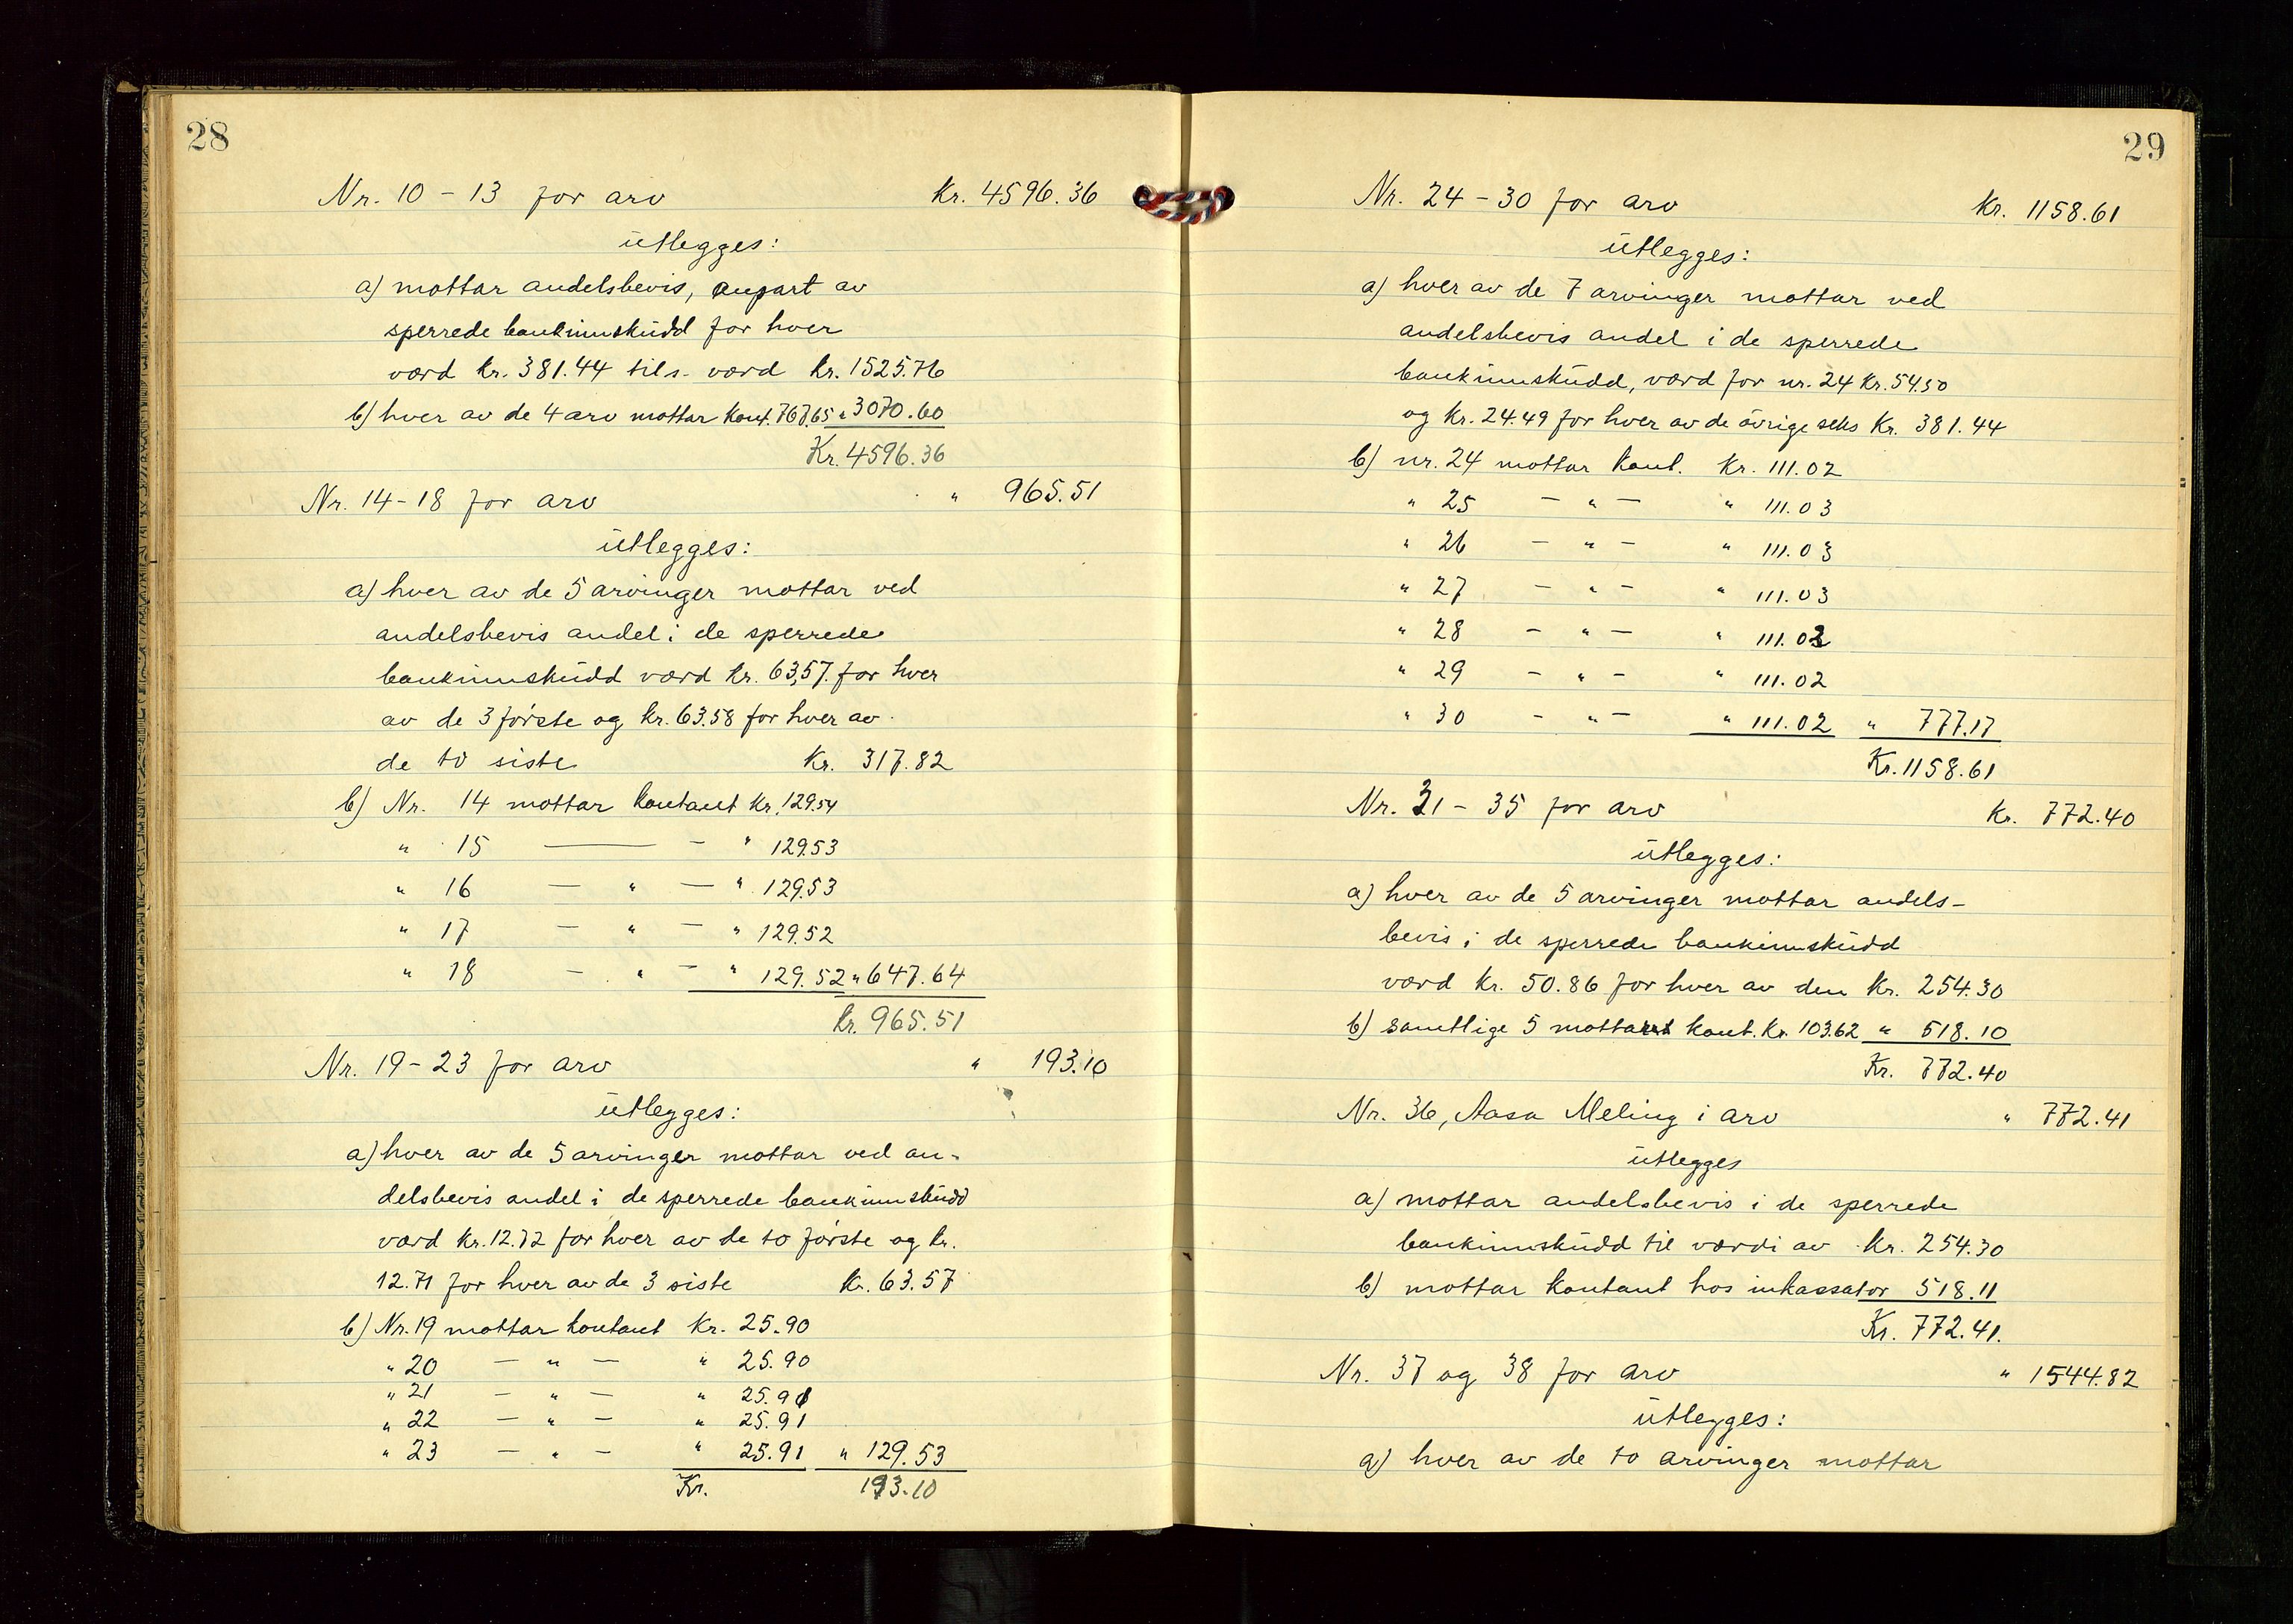 28
Nr. 10 - 13 for arv Kr. 4596.36
utlegges:
a) mottar andelsbevis, anpart av
sperrede bankinnskudd for hver
værd kr. 381.44 tils. værd kr. 1525.76
b) hver av de 4 arv mottar kont. 767.65 " 3070.60
Kr. 4596.36
Nr. 14 - 18 for arv " 965.51
utlegges:
a) hver av de 5 arvinger mottar ved
andelsbevis andel i de sperrede
bankinnskudd værd kr. 63,57 for hver
av de 3 første og kr. 63.58 for hver av
de to siste Kr. 317.82
b) Nr. 14 mottar kontant Kr. 129.54
" 15 — - " 129.53
" 16 — " — " 129.53
" 17 — " — " 129.52
" 18 — " — " 129.52 " 647.64
kr. 965.51
Nr. 19 - 23 for arv " 193.10
utlegges:
a) hver av de 5 arvinger mottar ved an-
delsbevis andel i de sperrede bankinnskudd
værd kr. 12.72 for hver av de to første og kr.
12.71 for hver av de 3 siste Kr. 63.57
b) Nr. 19 mottar kontant Kr. 25.90
" 20 — " — " 25.90
" 21 — " — " 25.91
" 22 — " — " 25.91
" 23 — " — " 25.91 " 129.53
Kr. 193.10
29
Nr. 24 - 30 for arv Kr. 1158.61
utlegges:
a) hver av de 7 arvinger mottar ved
andelsbevis andel i de sperrede
bankinnskudd, værd for nr. 24 Kr. 54.50
og Kr. 24.49 for hver av de øvrige seks Kr. 381.44
b) nr. 24 mottar kont. Kr. 111.02
" 25 — " — " 111.03
" 26 — " — " 111.03
" 27 — " — " 111.03
" 28 — " — " 111.02
" 29 — " — " 111.02
" 30 — " — " 111.02 " 777.17
Kr. 1158.61
Nr. 31 - 35 for arv Kr. 772.40
utlegges:
a) hver av de 5 arvinger mottar andels-
bevis i de sperrede bankinnskudd
værd Kr. 50.86 for hver av dem Kr. 254.30
b) samtlige 5 mottar kont. Kr. 103.62 " 518.10
Kr. 772.40
Nr. 36, Aasa Meling i arv " 772.41
utlegges
a) mottar andelsbevis i de sperrede
bankinnskudd til værdi av Kr. 254.30
b) mottar kontant hos inkassator 518.11
Kr. 772.41.
Nr. 37 og 38 for arv " 1544.82
utlegges:
a) hver av de to arvinger mottar